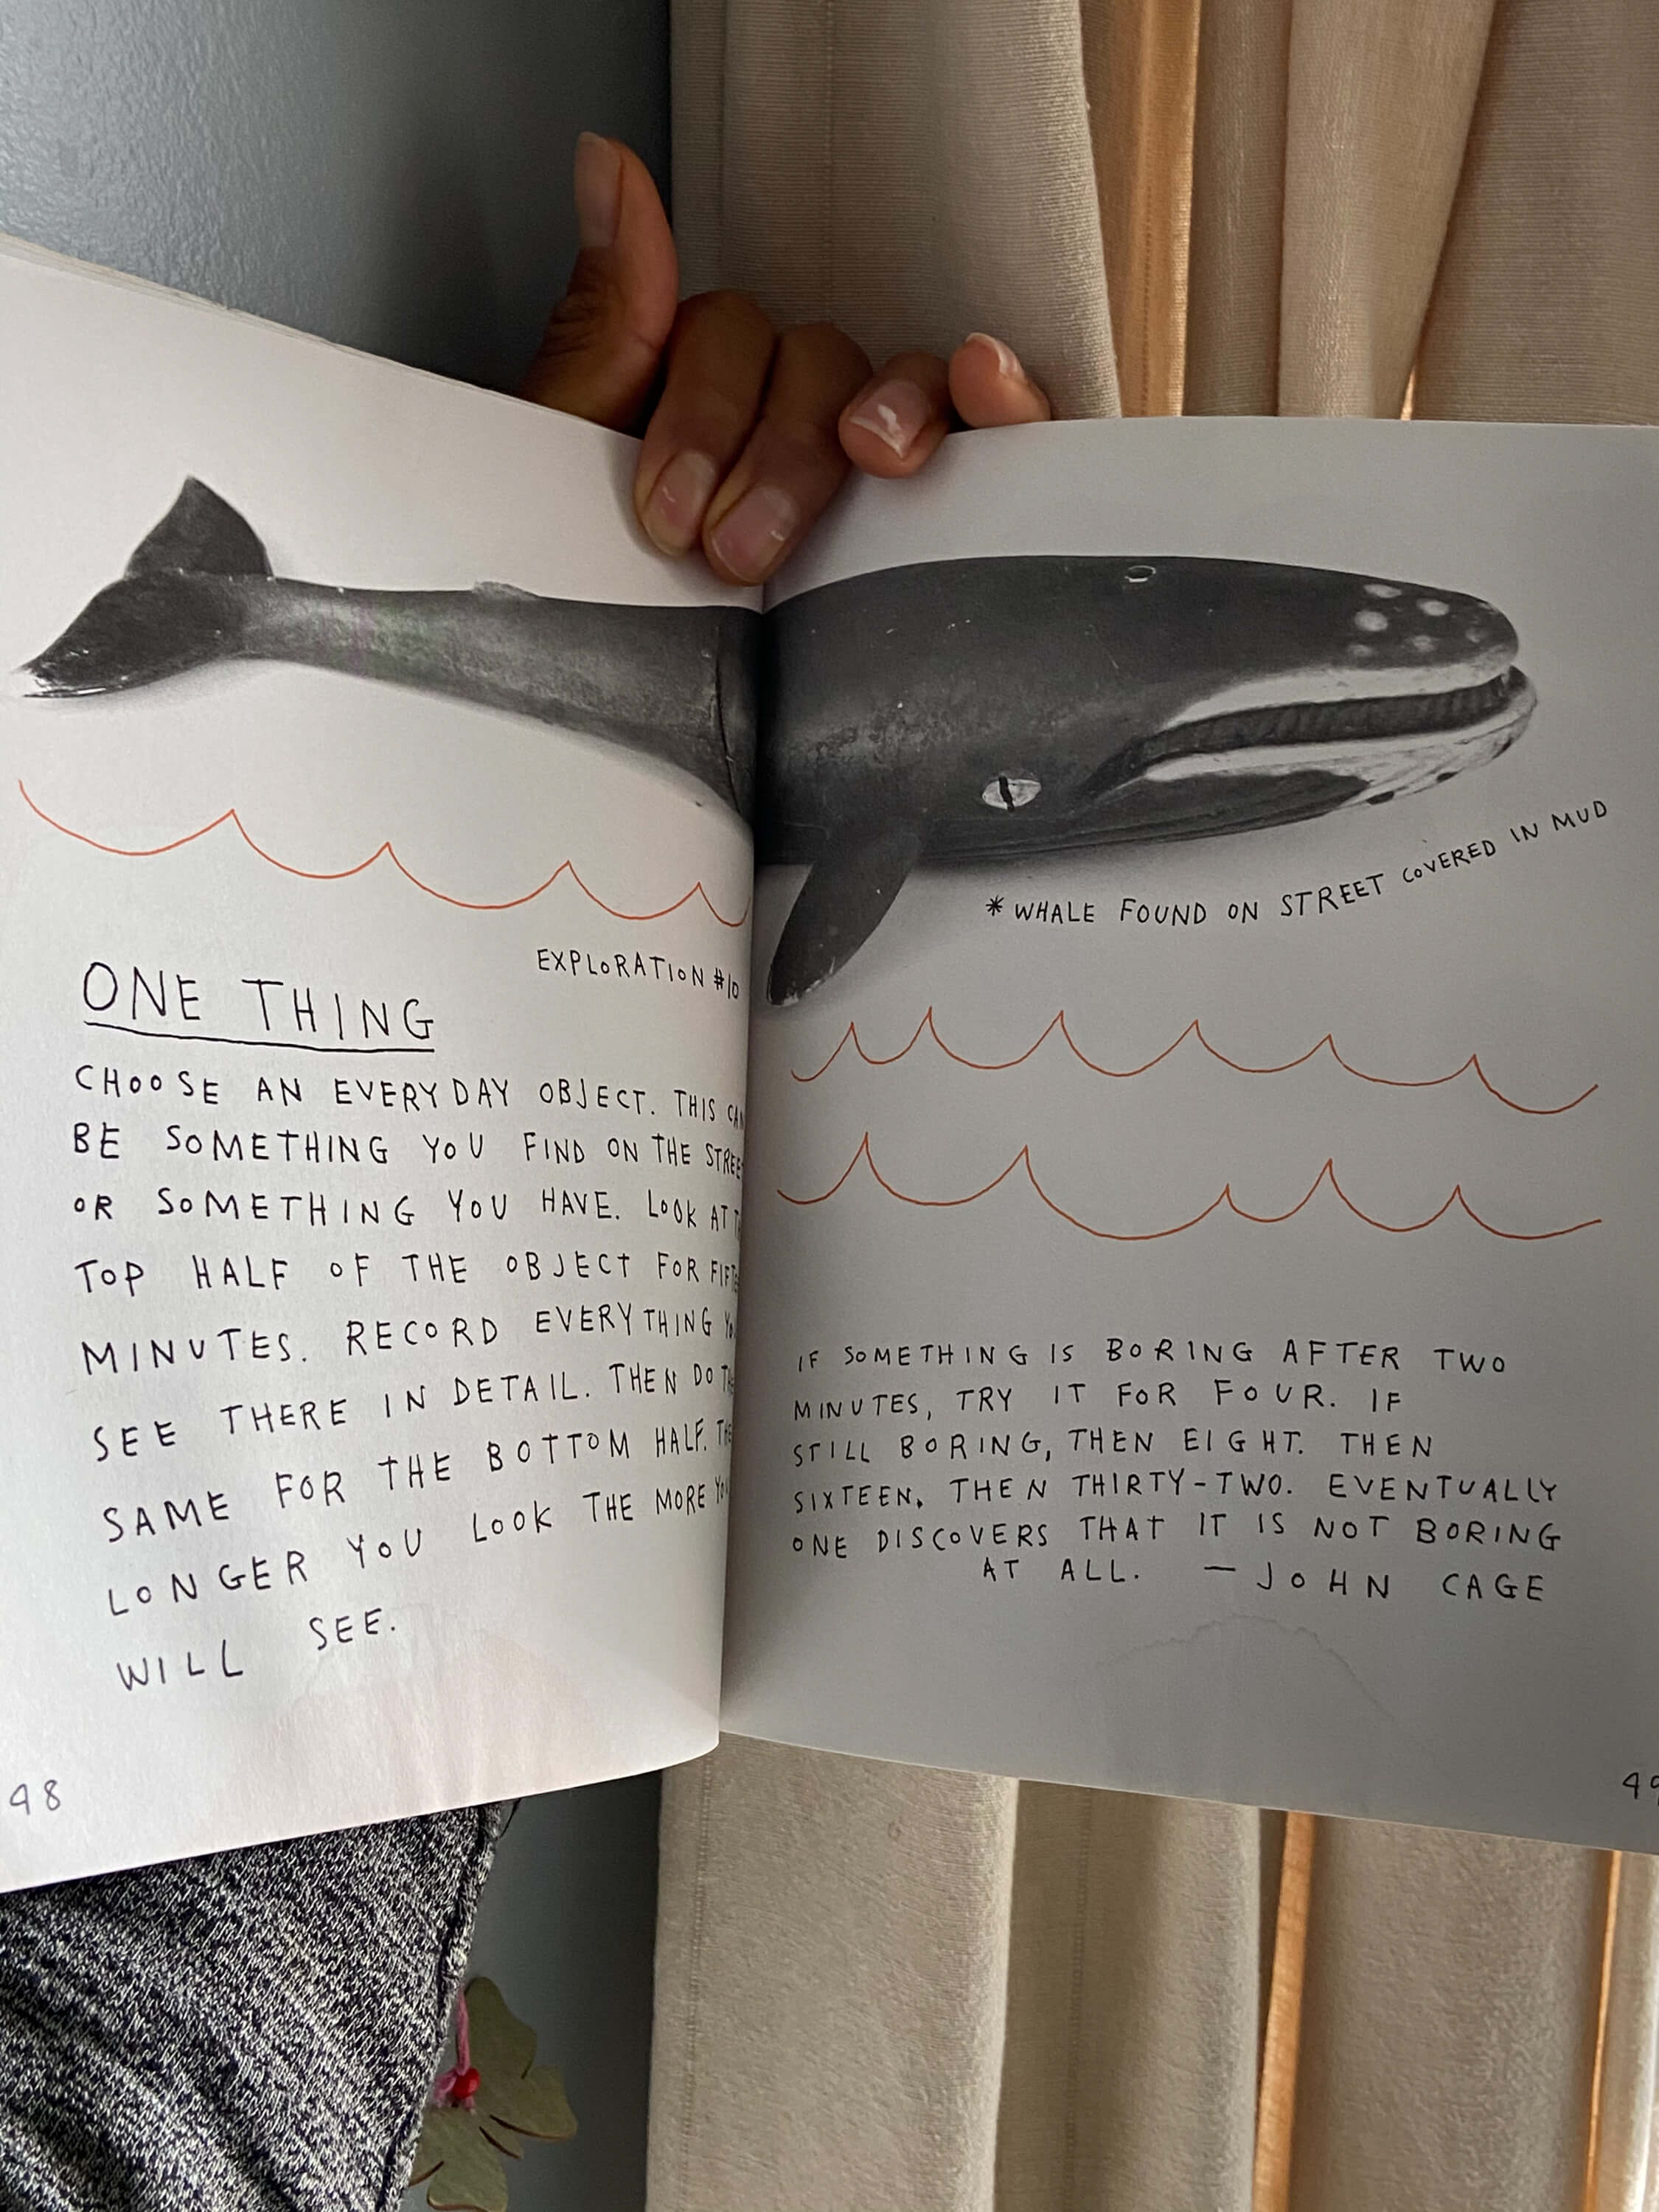 EXPLORATION #10
ONE THING
CHOOSE AN EVERYDAY OBJECT. THIS CAN
BE SOMETHING YOU FIND ON THE STREE
OR SOMETHING YOU HAVE. LOOK AT
TOP HALF OF THE OBJECT FOR
MINUTES. RECORD EVERYTHING
SEE THERE IN DETAIL. THEN DO
SAME FOR THE BOTTOM HALF.
LONGER YOU LOOK THE MORE
WILL SEE.
48
*WHALE FOUND ON STREET COVERED IN MUD
IF SOMETHING IS BORING AFTER TWO
MINUTES, TRY IT FOR FOUR. IF
STILL BORING, THEN EIGHT. THEN
SIXTEEN. THEN THIRTY-TWO. EVENTUALLY
ONE DISCOVERS THAT IT IS NOT BORING
AT ALL. — JOHN CAGE
49